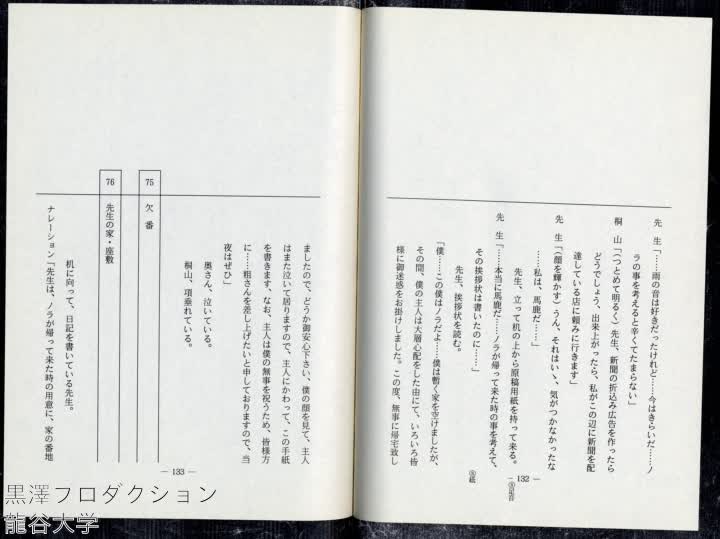 先　生「……雨の音は好きだったけれど……今はきらいだ……ノ
ラの事を考えると辛くてたまらない」
桐　山「（つとめて明るく）先生、新聞の折込み広告を作ったら
どうでしょう、出来上がったら、私がこの辺に新聞を配
達している店に頼みに行きます」
先　生「（顔を輝かす）うん、それはいゝ、気がつかなかったな
……私は、馬鹿だ……」
先生、立って机の上から原稿用紙を持って来る。
先　生「……本当に馬鹿だ……ノラが帰って来た時の事を考えて、
その挨拶状は書いたのに……」
先生、挨拶状を読む。
「僕……この僕はノラだよ……僕は暫く家を空けましたが、
その間、僕の主人は大層心配をした由にて、いろいろ皆
様に御迷惑をお掛けしました。この度、無事に帰宅致し
— 132 —
ましたので、どうか御安心下さい、僕の顔を見て、主人
はまた泣いて居りますので、主人にかわって、この手紙
を書きます、なお、主人は僕の無事を祝うため、皆様方
に……粗さんを差し上げたいと申しておりますので、当
夜はぜひ」
奥さん、泣いている。
桐山、項垂れている。
75　欠　番
76　先生の家・座敷
机に向って、日記を書いている先生。
ナレーション「先生は、ノラが帰って来た時の用意に、家の番地
— 133 —
黒澤プロダクション
龍谷大学